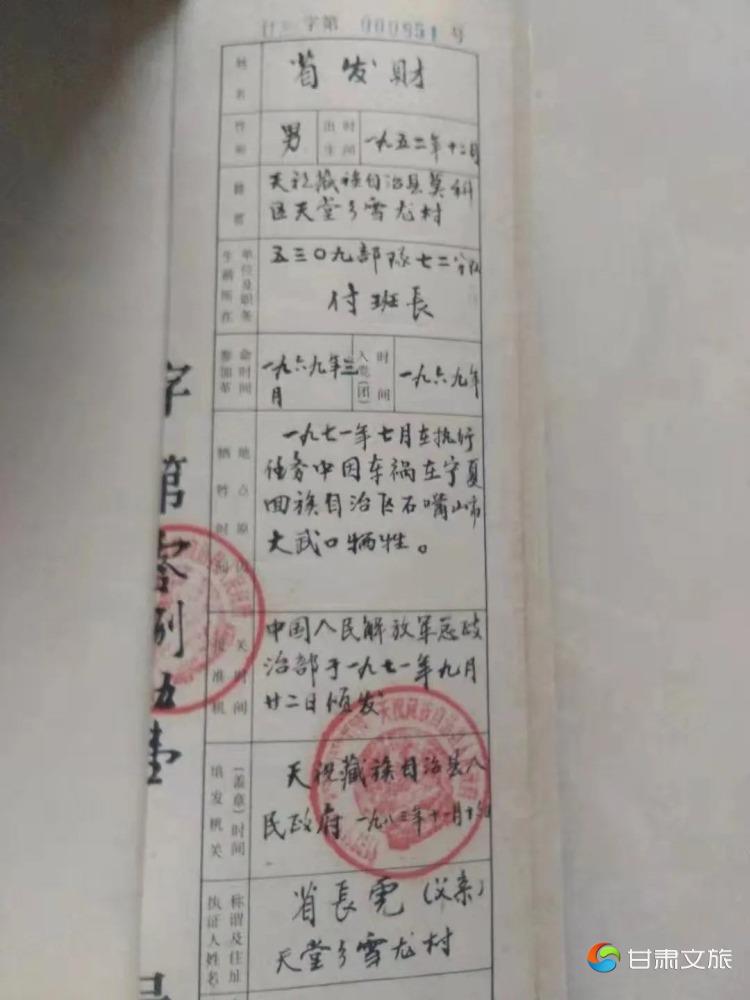 字第 000951 号
姓名
省发财
性别
男
出生时间
一九五二年十二月
籍贯
天祝藏族自治县莫科
区天堂乡雪龙村
生前所在单位及职务
五三〇九部队七二分队
付班長
参加革命时间
一九六九年三
月
入党(团)时间
一九六九年
牺牲时间地点原因
一九七一年七月在执行
任务中因车祸在宁夏
回族自治区石嘴山市
大武口牺牲。
批准机关时间
中国人民解放军总政
治部于一九七一年九月
廿二日颁发
填发机关(盖章)时间
天祝藏族自治县人
民政府一九八三年十一月十
执证人姓名称谓及住址
省長
(父亲)
天堂乡雪龙村
字第
甘肃文旅